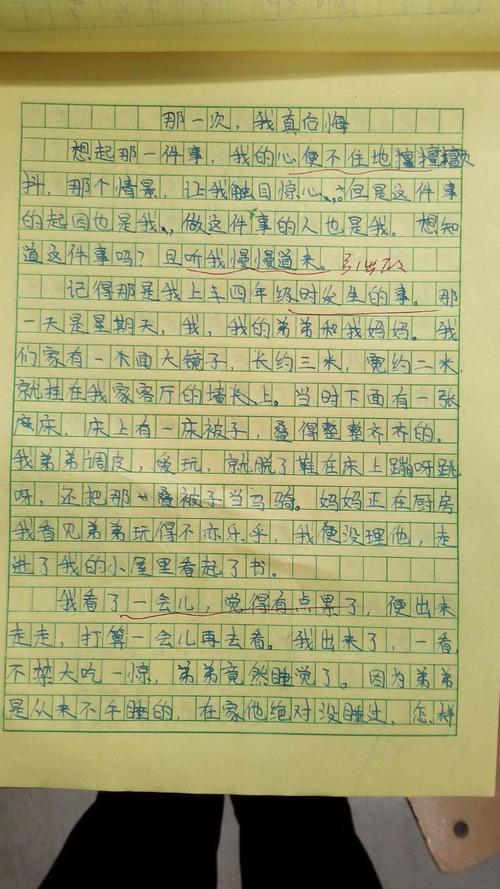 那一次，我真后悔
想起那一件事，我的心便不住地擅擅颤
抖，那个情景，让我触目惊心。但是这件事
的起因也是我，做这件事的人也是我。想知
道这件事吗？且听我慢慢道来。引出下文
记得那是我上车四年级时发生的事。那
一天是星期天，我，我的弟弟和我妈妈。我
们家有一木面大镜子，长约三米，宽约二米，
就挂在我家客厅的墙长上。当时下面有一张
床，床上有一床被子，叠得整整齐齐的。
我弟弟调皮，爱玩，就脱了鞋在床上蹦呀跳
呀，还把那叠被子当马骑。妈妈正在厨房
我看见弟弟玩得不亦乐乎，我便没理他，走
进了我的小屋里看起了书。
我看了一会儿，觉得有点累了，便出来
走走，打算一会儿再去看。我出来了，一看，
不禁大吃一惊，弟弟竟然睡觉了。因为弟弟
是从来不午睡的，在家他绝对没睡过，怎样